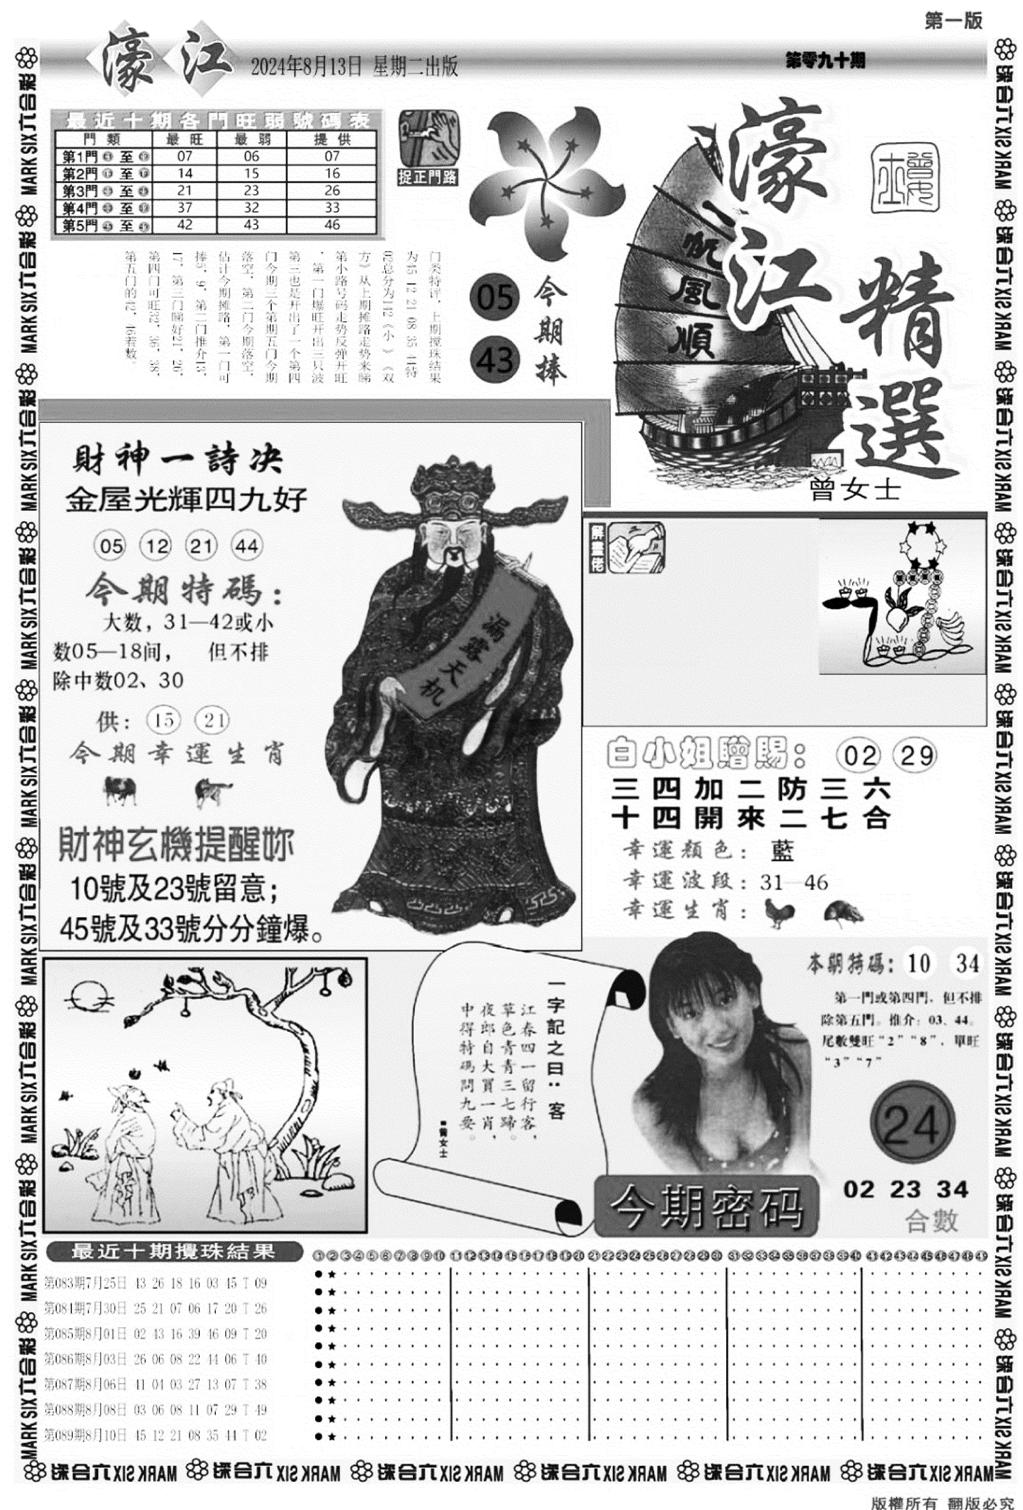 第一版
濠江
2024年8月13日 星期二出版
第零九十期
最近十期各門旺弱號碼表
門類 最旺 最弱 提供
第1門 至 07 06 07
第2門 至 14 15 16
第3門 至 21 23 26
第4門 至 37 32 33
第5門 至 42 43 46
捉正門路
今期捧
05
43
濠江
精選
一帆風順
曾女士
门类特评，上期搅珠结果
为45 12 21 08 35 44特
02总分为112《小》《双
方》从上期摊路走势来睇
第小路号码走势反弹开旺
，第一门爆旺开出三只波
第三也是开出了一个第四
门今期三个第期五门今期
落空，第二门今期落空，
估计今期摊路，第一门可
捧5、9，第二门推介13、
17，第三门睇好21、26、
第四门可旺32、36、38、
第五门的42、46着数。
財神一詩决
金屋光輝四九好
05 12 21 44
今期特碼：
大数，31—42或小
数05—18间， 但不排
除中数02、30
供：15 21
今期幸運生肖
財神玄機提醒妳
10號及23號留意；
45號及33號分分鐘爆。
漏露天机
解畫佬
白小姐贈賜：02 29
三四加二防三六
十四開來二七合
幸運顏色：藍
幸運波段：31—46
幸運生肖：
一字記之曰：客
江春四一留行客，
草色青青三七歸。
夜郎自大買一肖，
中得特碼問九要。
■曾女士
本期特碼：10 34
第一門或第四門，但不排
除第五門。推介：03、44。
尾數雙旺“2”“8”，單旺
“3”“7”
24
今期密码
02 23 34
合數
最近十期攪珠結果
①②③④⑤⑥⑦⑧⑨⑩⑪⑫⑬⑭⑮⑯⑰⑱⑲⑳㉑㉒㉓㉔㉕㉖㉗㉘㉙㉚㉛㉜㉝㉞㉟㊱㊲㊳㊴㊵㊶㊷㊸㊹㊺㊻㊼㊽㊾
第083期7月25日 43 26 18 16 03 45 T 09
第084期7月30日 25 21 07 06 17 20 T 26
第085期8月01日 02 43 16 39 46 09 T 20
第086期8月03日 26 06 08 22 44 06 T 40
第087期8月06日 41 04 03 27 13 07 T 38
第088期8月08日 03 06 08 11 07 29 T 49
第089期8月10日 45 12 21 08 35 44 T 02
MARK SIX六合彩
版權所有 翻版必究